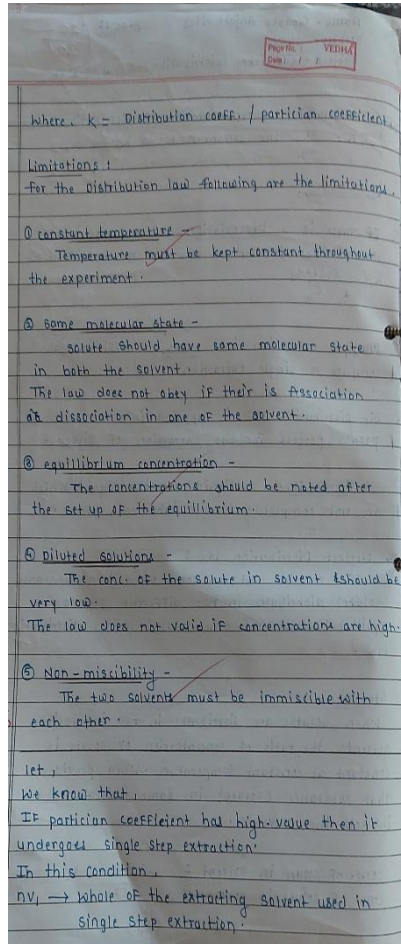 Page No. VEDHA
Date: / /
Where, K = Distribution coeff. / partician coefficient.
Limitations :
For the Distribution law following are the limitations.
① constant temperature -
Temperature must be kept constant throughout
the experiment.
② same molecular state -
solute should have same molecular state
in both the solvent.
The law does not obey if their is Association
or dissociation in one of the solvent.
③ equillibrium concentration -
The concentrations should be noted after
the set up of the equilibrium.
④ Diluted solutions -
The conc. of the solute in solvent should be
very low.
The law does not valid if concentrations are high.
⑤ Non-miscibility -
The two solvents must be immiscible with
each other.
let,
We know that,
If partician coefficient has high value then it
undergoes single step extraction.
In this condition,
nv₁ → whole of the extracting solvent used in
single step extraction.